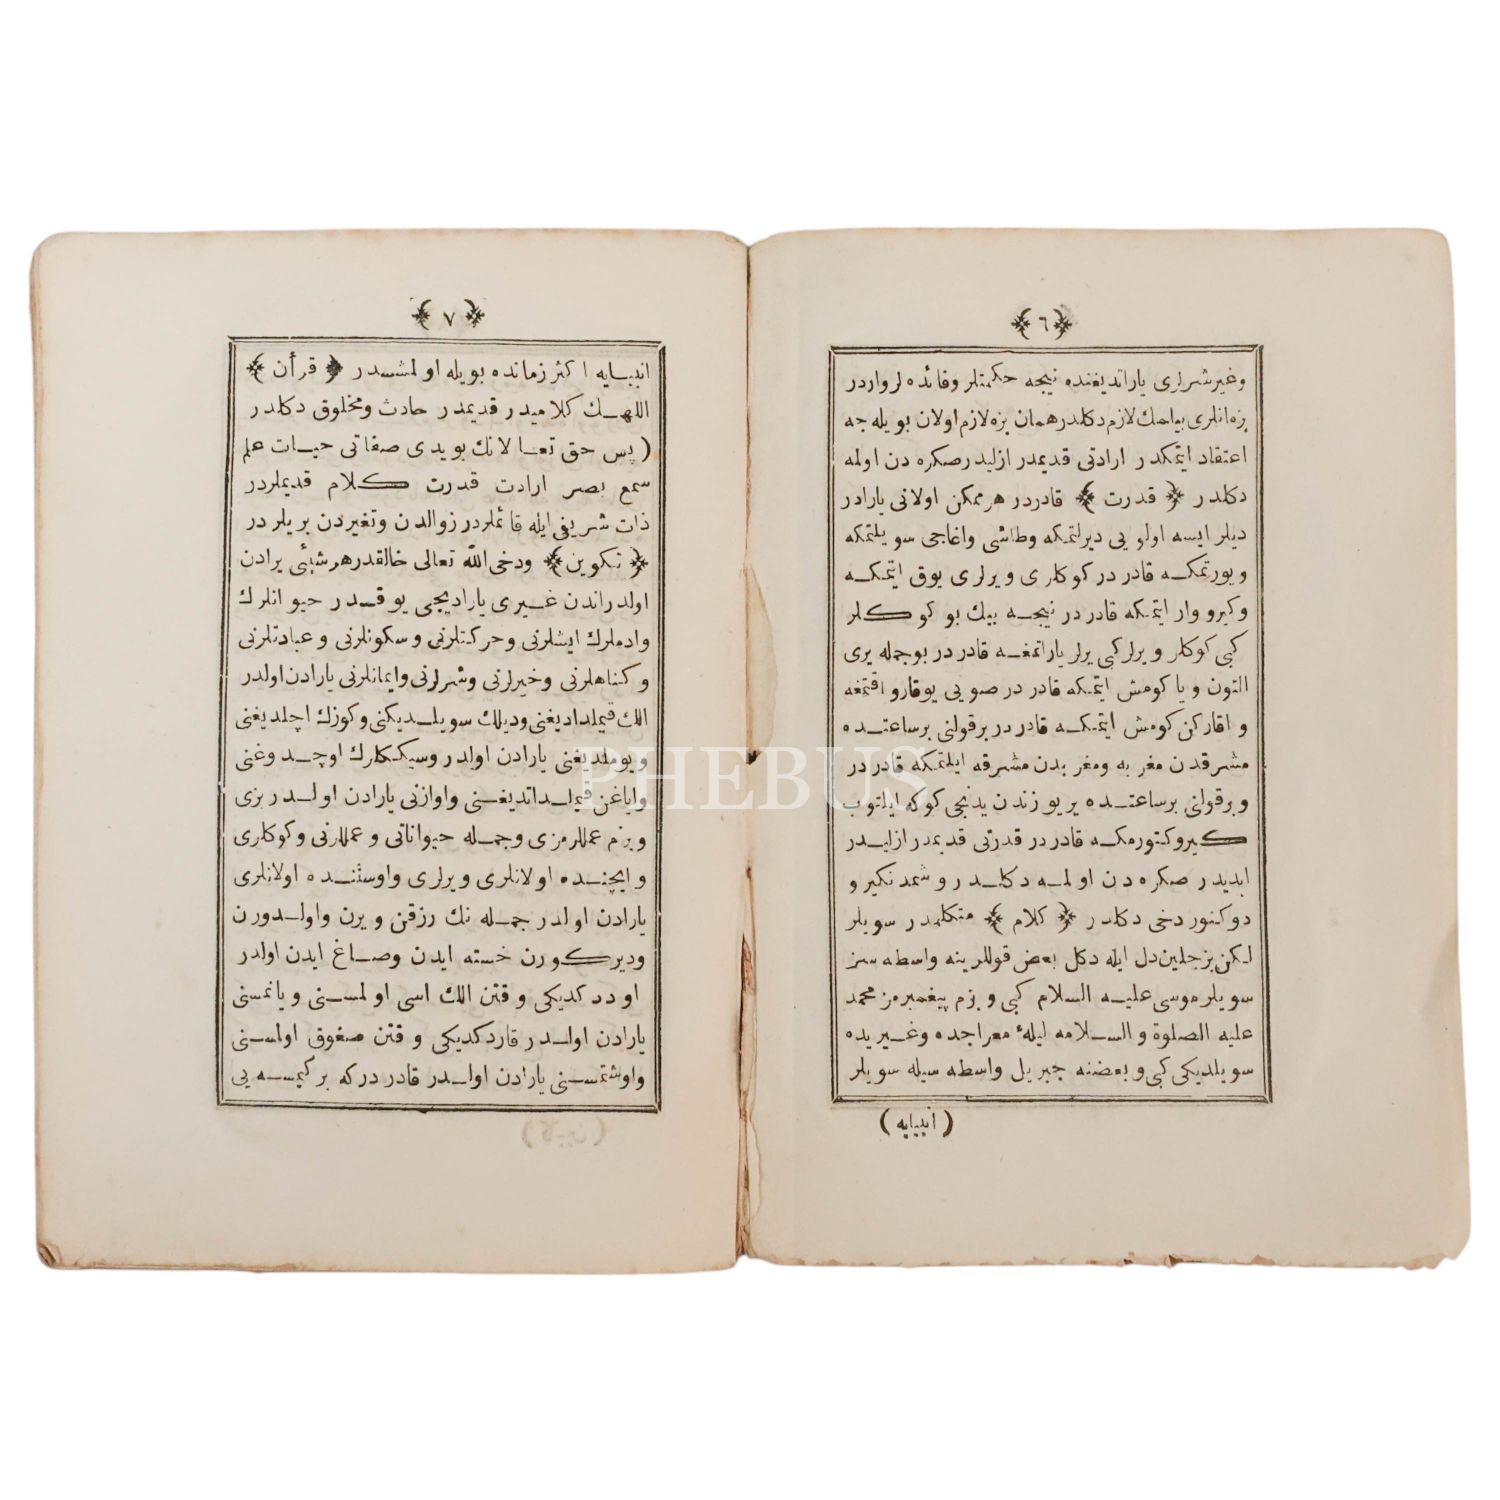 ﴿ ٦ ﴾
وغیر شرلری یاراتدیغنده نیجه حکمتلر وفائده لرواردر
بزه انلری بیلمك لازم دکلدر همان بزه لازم اولان بویله جه
اعتقاد ایتمکدر ارادتی قدیمدر ازلیدر صکره دن اولمه
دکلدر ﴿ قدرت ﴾ قادردر هرممکن اولانی یارادر
دیلر ایسه اولو یی دیرلتمکه وطاشی واغاجی سویلتمکه
ویورتمکـه قادر در کوکلری ویرلری یوق ایتمکـه
وکیرو وار ایتمکه قادر در نیجـه بیك بو کوکلر
کبی کوکلر ویرلر کبی یرلر یاراتمغـه قادر در بوجمله یری
التون و یا کومش ایتمکه قادر در صویی یوقارو اقتمغه
و اقارکن کومش ایتمکـه قادر در برقولنی برساعتـده
مشرقدن مغربه ومغربدن مشرقه ایلتمکه قادر در
وبرقولنی برساعتـده یر یوزندن یدنجی کوکه ایلتوب
کیروکتورمکـه قادر در قدرتی قدیمدر ازلیدر
ابدیدر صکره دن اولمـه دکلـدر وشمدنکیرو
دوکنور دخی دکلدر ﴿ کلام ﴾ متکلمدر سویلر
لیکن بزجلین دل ایله دکل بعض قوللرینه واسطه سز
سویلر موسی علیـه السلام کبی وبزم پیغمبرمز محمد
علیه الصلوة والسـلامه لیلهٔ معراجده وغیریده
سویلدیکی کبی وبعضنه جبریل واسطه سیله سویلر
( انبیایه )
﴿ ٧ ﴾
انبیـایه اکثر زمانده بویله اولمشـدر ﴿ قرأن ﴾
اللهـك کلامیدر قدیمدر حادث ومخلوق دکلدر
( پس حق تعـالانك بویدی صفاتی حیـات علم
سمع بصر ارادت قدرت کلام قدیملردر
ذات شریفی ایله قائملردر زوالدن وتغیردن بریلردر
﴿ تکوین ﴾ ودخی الله تعالی خالقدر هرشیئی یرادن
اولدر اندن غـیری یارادیجی یوقـدر حیوانلرك
وادملرك ایشلرنی وحرکتلرنی وسکونلرنی وعبادتلرنی
وکناهلرنی وخیرلرنی وشرلرنی وایمانلرنی یارادن اولدر
الك قیملدادیغنی ودیلك سویلـدیکنی وکوزك اچلدیغنی
ویوملدیغنی یارادن اولدر وسیککلرك اوچـدوغنی
وایاغن قیملـداتدیغـنی واوازنی یارادن اولـدر بزی
وبزم عمللرمزی وجمـله حیواناتی وعمللرنی وکوکلری
وایچنـده اولانلری ویرلری واوستنـده اولانلری
یارادن اولدر جمـله نك رزقن ویرن واولـدورن
ودیرکورن خسته ایدن وصـاغ ایدن اولدر
اود دکدیکی وقتن الك اسی اولمسـنی ویانمسنی
یارادن اولـدر قاردکدیکی وقتن صغوق اولمسـنی
واوشتمسـنی یارادن اولـدر قادر درکه برکیمسـه یی
PHEBUS